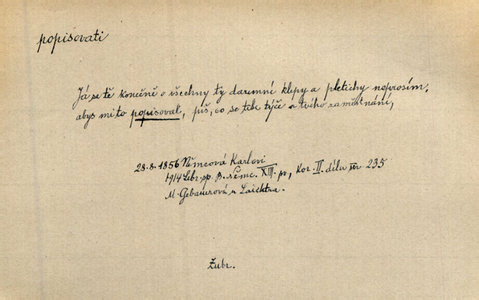 popisovati
Já se tě konečně o všechny ty daremní klepy a pletichy neprosím,
abys mi to popisoval, piš, co se tebe týče a tvého zaměstnání,
28-8-1856 Němcová Karlovi
1914 Sebr. sp. B. Němc. XIII. p, Kor. II. dílu str 235
M. Gebauerová u Laichtra.
Zubr.